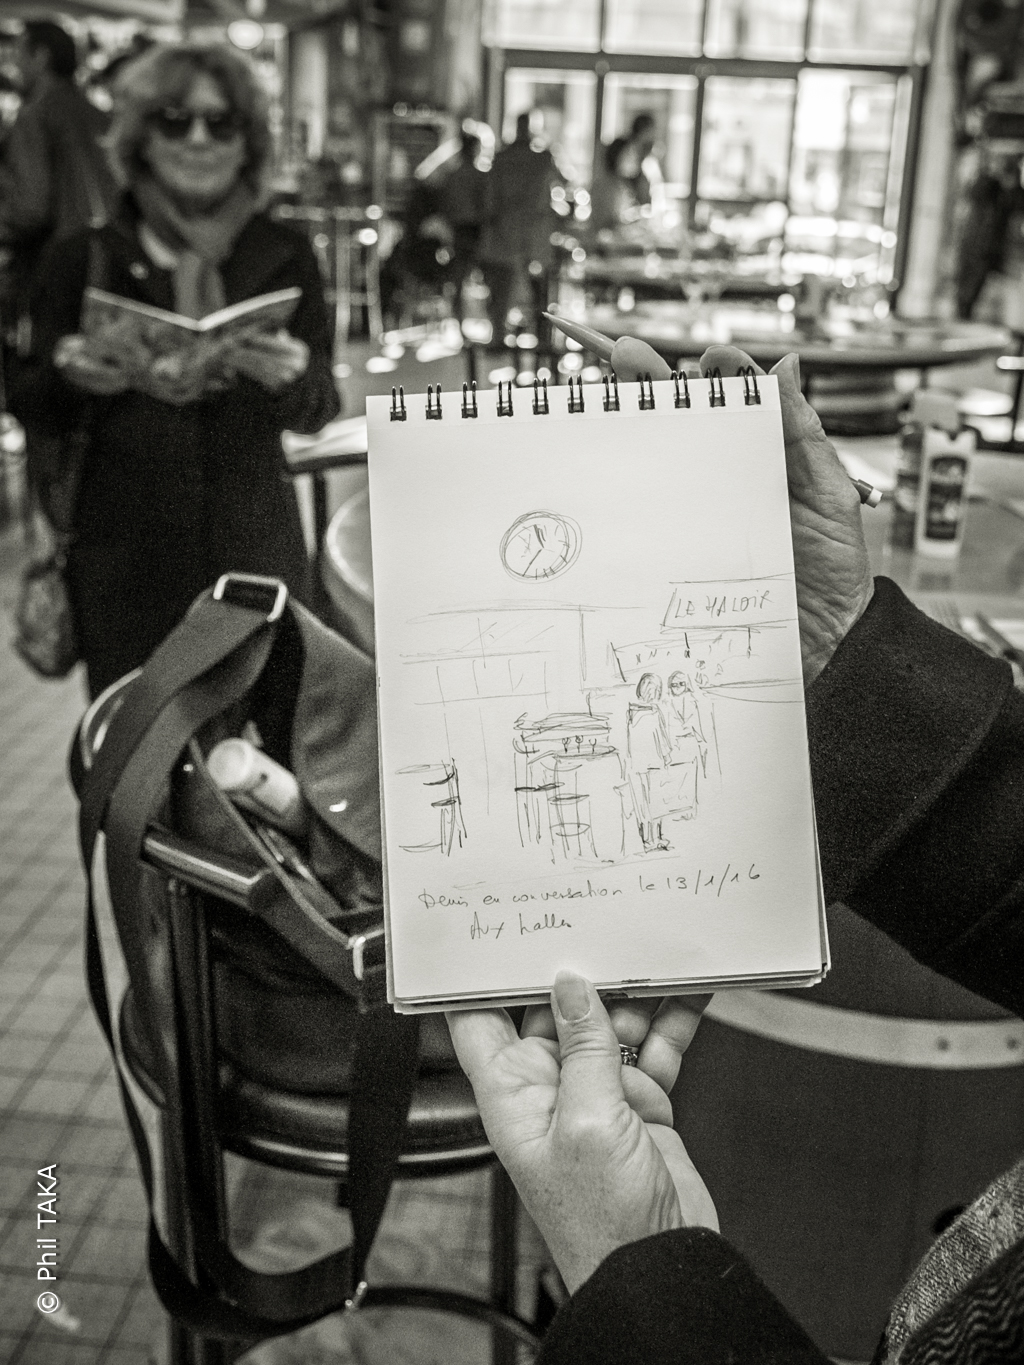 LE HALOIR
Denis en conversation le 13/1/16
Aux halles
© Phil TAKA